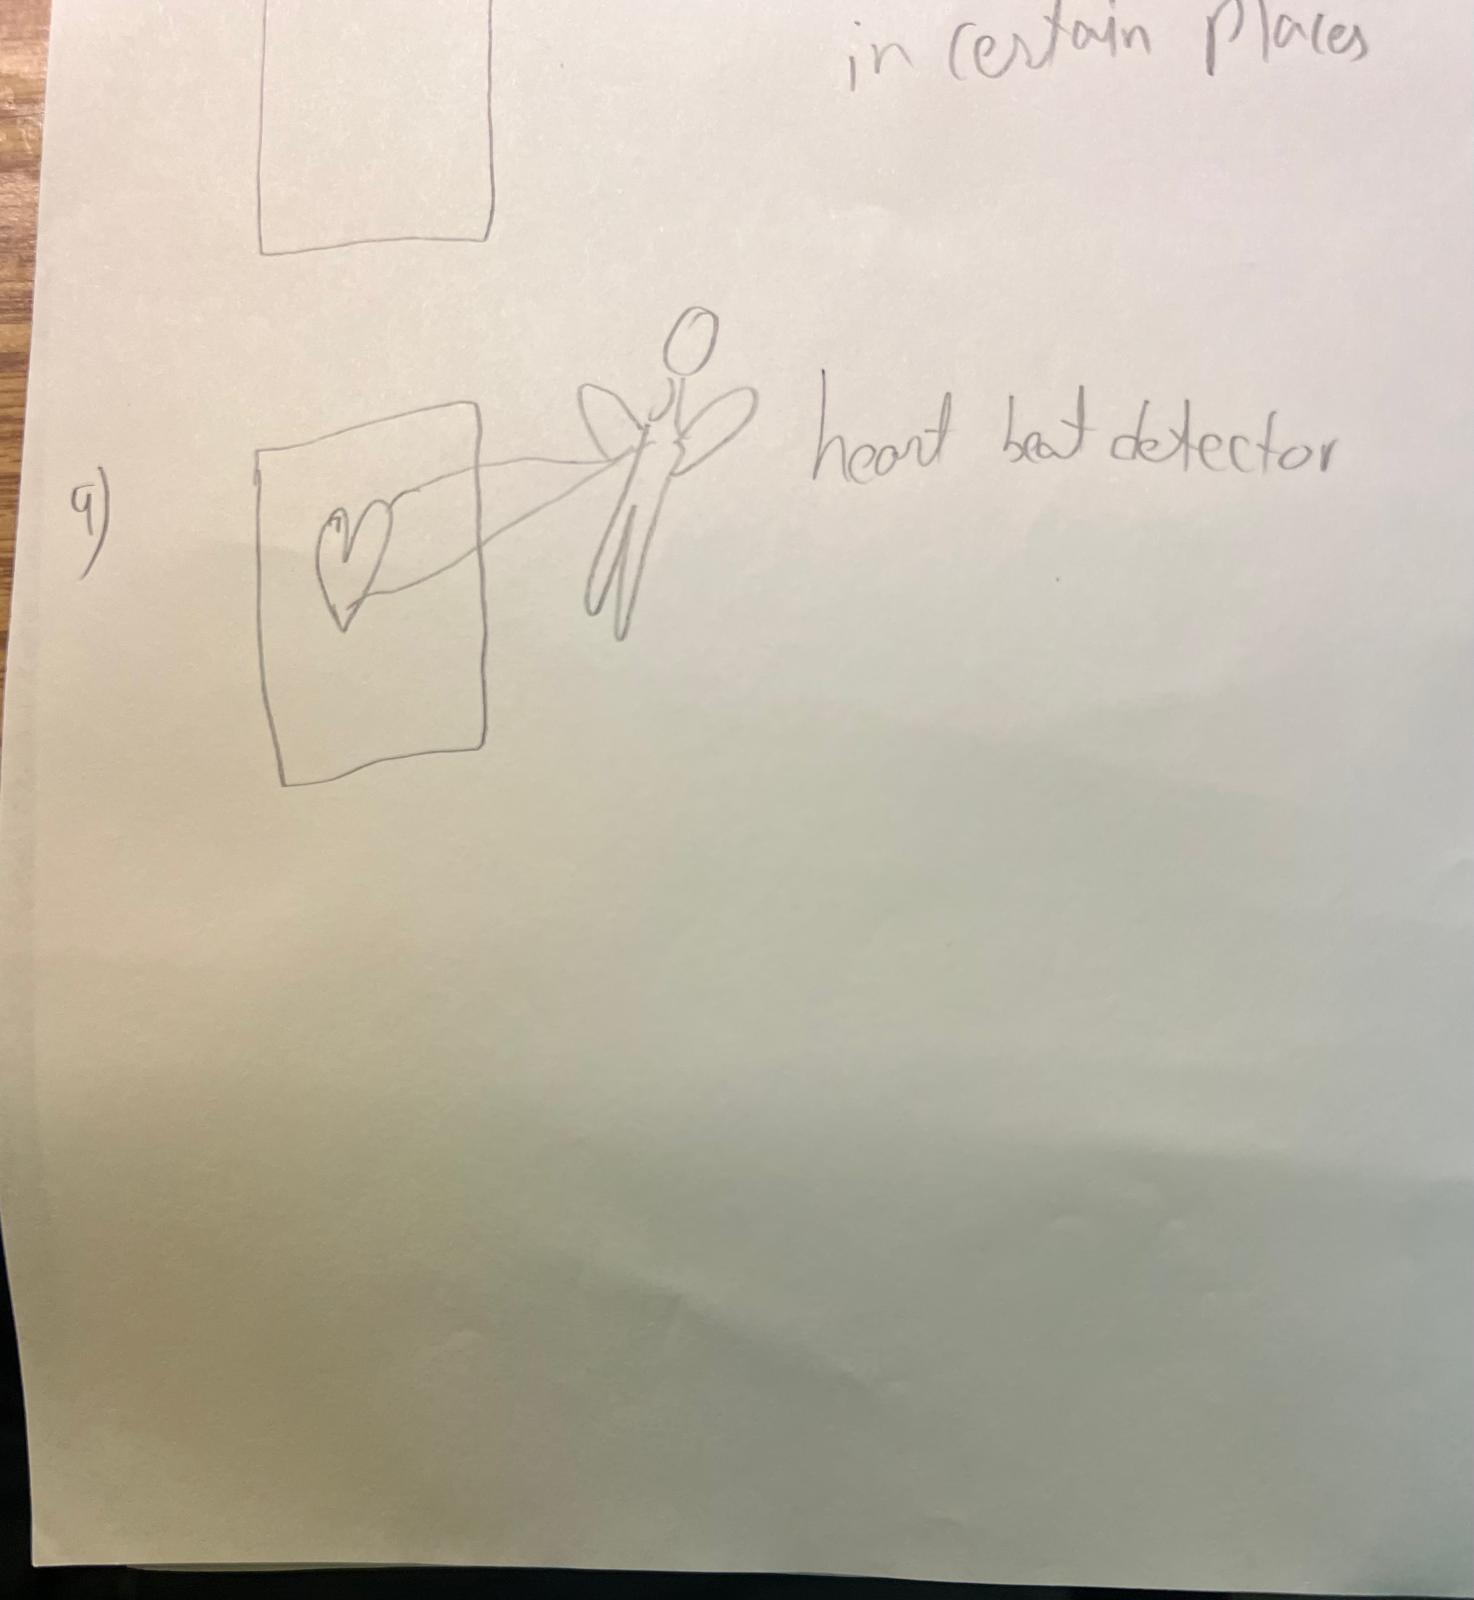 in certain places
9) heart beat detector